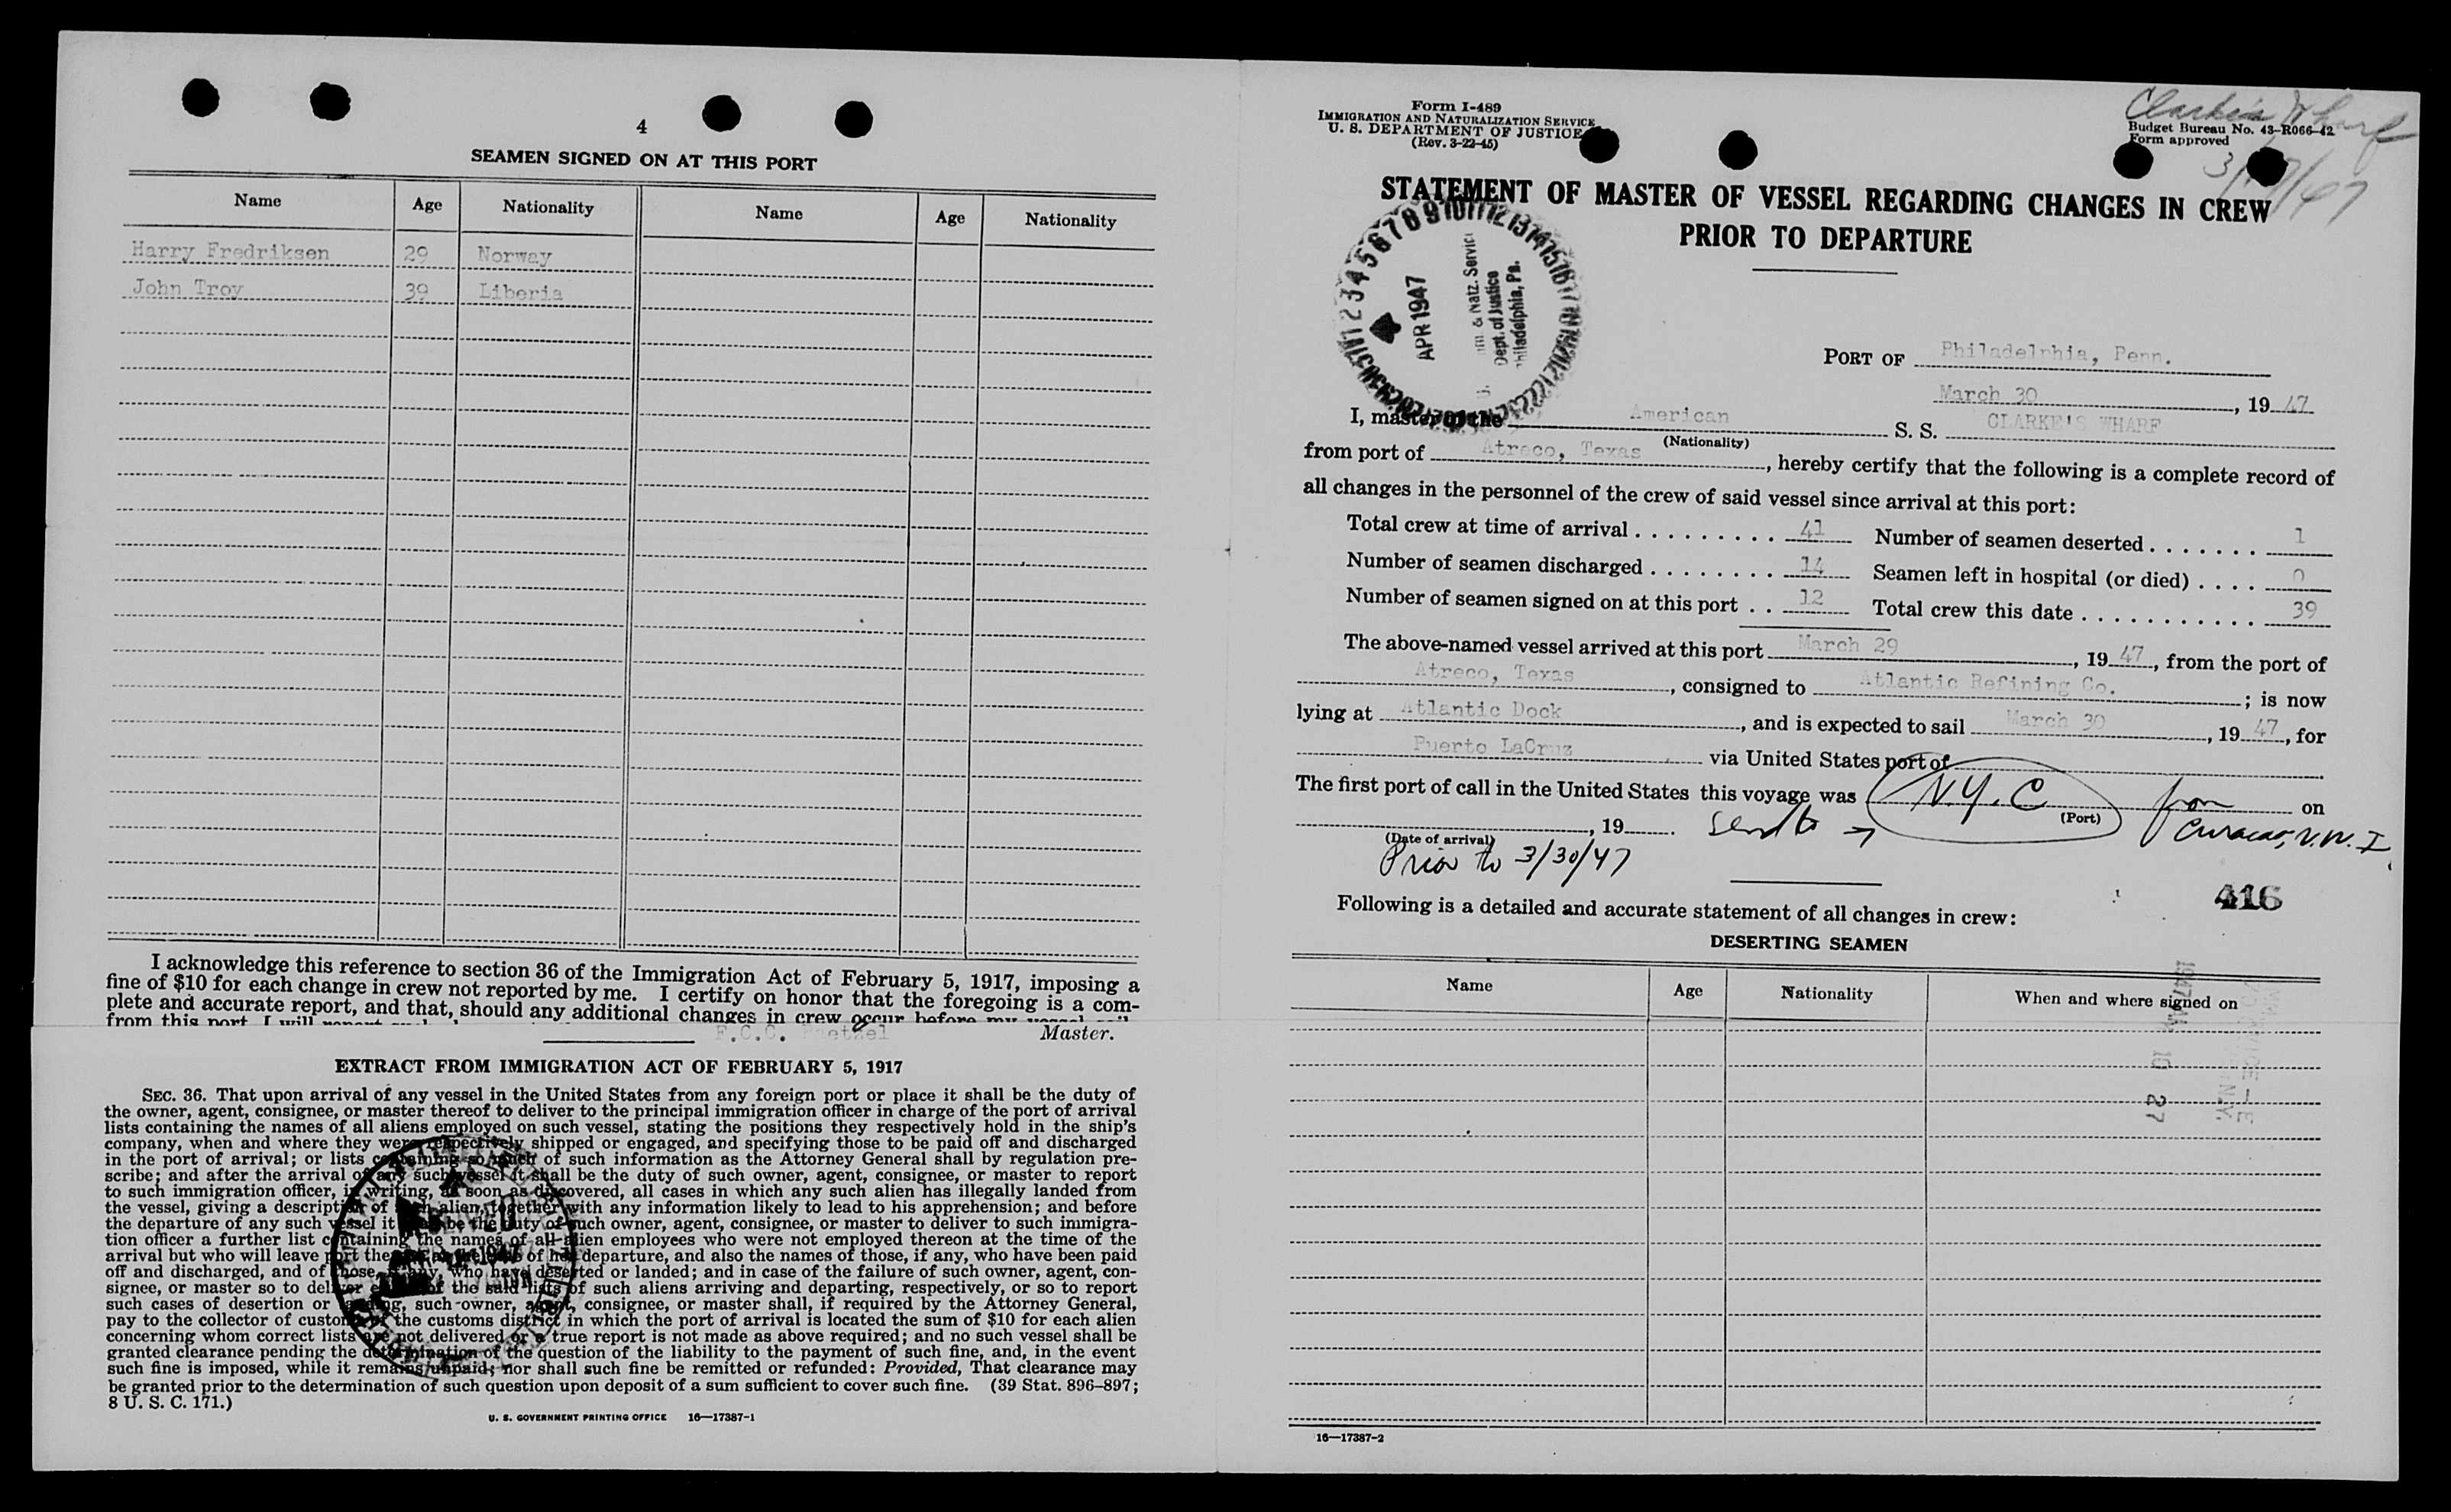 4
SEAMEN SIGNED ON AT THIS PORT
Name Age Nationality Name Age Nationality
Harry Fredriksen 29 Norway
John Troy 39 Liberia
I acknowledge this reference to section 36 of the Immigration Act of February 5, 1917, imposing a
fine of $10 for each change in crew not reported by me. I certify on honor that the foregoing is a com-
plete and accurate report, and that, should any additional changes in crew occur before my vessel
from this port, I will report
F.C.C. Master.
EXTRACT FROM IMMIGRATION ACT OF FEBRUARY 5, 1917
SEC. 36. That upon arrival of any vessel in the United States from any foreign port or place it shall be the duty of
the owner, agent, consignee, or master thereof to deliver to the principal immigration officer in charge of the port of arrival
lists containing the names of all aliens employed on such vessel, stating the positions they respectively hold in the ship's
company, when and where they were respectively shipped or engaged, and specifying those to be paid off and discharged
in the port of arrival; or lists containing so much of such information as the Attorney General shall by regulation pre-
scribe; and after the arrival of any such vessel it shall be the duty of such owner, agent, consignee, or master to report
to such immigration officer, in writing, as soon as discovered, all cases in which any such alien has illegally landed from
the vessel, giving a description of such alien, together with any information likely to lead to his apprehension; and before
the departure of any such vessel it shall be the duty of such owner, agent, consignee, or master to deliver to such immigra-
tion officer a further list containing the names of all alien employees who were not employed thereon at the time of the
arrival but who will leave port thereon at the time of her departure, and also the names of those, if any, who have been paid
off and discharged, and of those, if any, who have deserted or landed; and in case of the failure of such owner, agent, con-
signee, or master so to deliver either of the said lists of such aliens arriving and departing, respectively, or so to report
such cases of desertion or landing, such owner, agent, consignee, or master shall, if required by the Attorney General,
pay to the collector of customs of the customs district in which the port of arrival is located the sum of $10 for each alien
concerning whom correct lists are not delivered or a true report is not made as above required; and no such vessel shall be
granted clearance pending the determination of the question of the liability to the payment of such fine, and, in the event
such fine is imposed, while it remains unpaid; nor shall such fine be remitted or refunded: Provided, That clearance may
be granted prior to the determination of such question upon deposit of a sum sufficient to cover such fine. (39 Stat. 896–897;
8 U. S. C. 171.)
U. S. GOVERNMENT PRINTING OFFICE 16—17387-1
Form I-489
IMMIGRATION AND NATURALIZATION SERVICE
U. S. DEPARTMENT OF JUSTICE
(Rev. 3-22-45)
Clarke's Wharf
Budget Bureau No. 43–R066-42
Form approved
STATEMENT OF MASTER OF VESSEL REGARDING CHANGES IN CREW
PRIOR TO DEPARTURE
APR 1947
Imm. & Natz. Service
Dept. of Justice
Philadelphia, Pa.
PORT OF Philadelphia, Penn.
March 30, 19 47
I, master of the American S. S. CLARKE'S WHARF
(Nationality)
from port of Atreco, Texas, hereby certify that the following is a complete record of
all changes in the personnel of the crew of said vessel since arrival at this port:
Total crew at time of arrival . . . . . . . . . 41 Number of seamen deserted . . . . . . . 1
Number of seamen discharged . . . . . . . . 14 Seamen left in hospital (or died) . . . . 0
Number of seamen signed on at this port . . 12 Total crew this date . . . . . . . . . . . 39
The above-named vessel arrived at this port March 29, 19 47, from the port of
Atreco, Texas, consigned to Atlantic Refining Co.; is now
lying at Atlantic Dock, and is expected to sail March 30, 19 47, for
Puerto LaCruz via United States port of
The first port of call in the United States this voyage was N.Y.C from on
(Port)
, 19 Send to → Curacao, N.W.I.
(Date of arrival)
Prior to 3/30/47
416
Following is a detailed and accurate statement of all changes in crew:
DESERTING SEAMEN
Name Age Nationality When and where signed on
16—17387-2